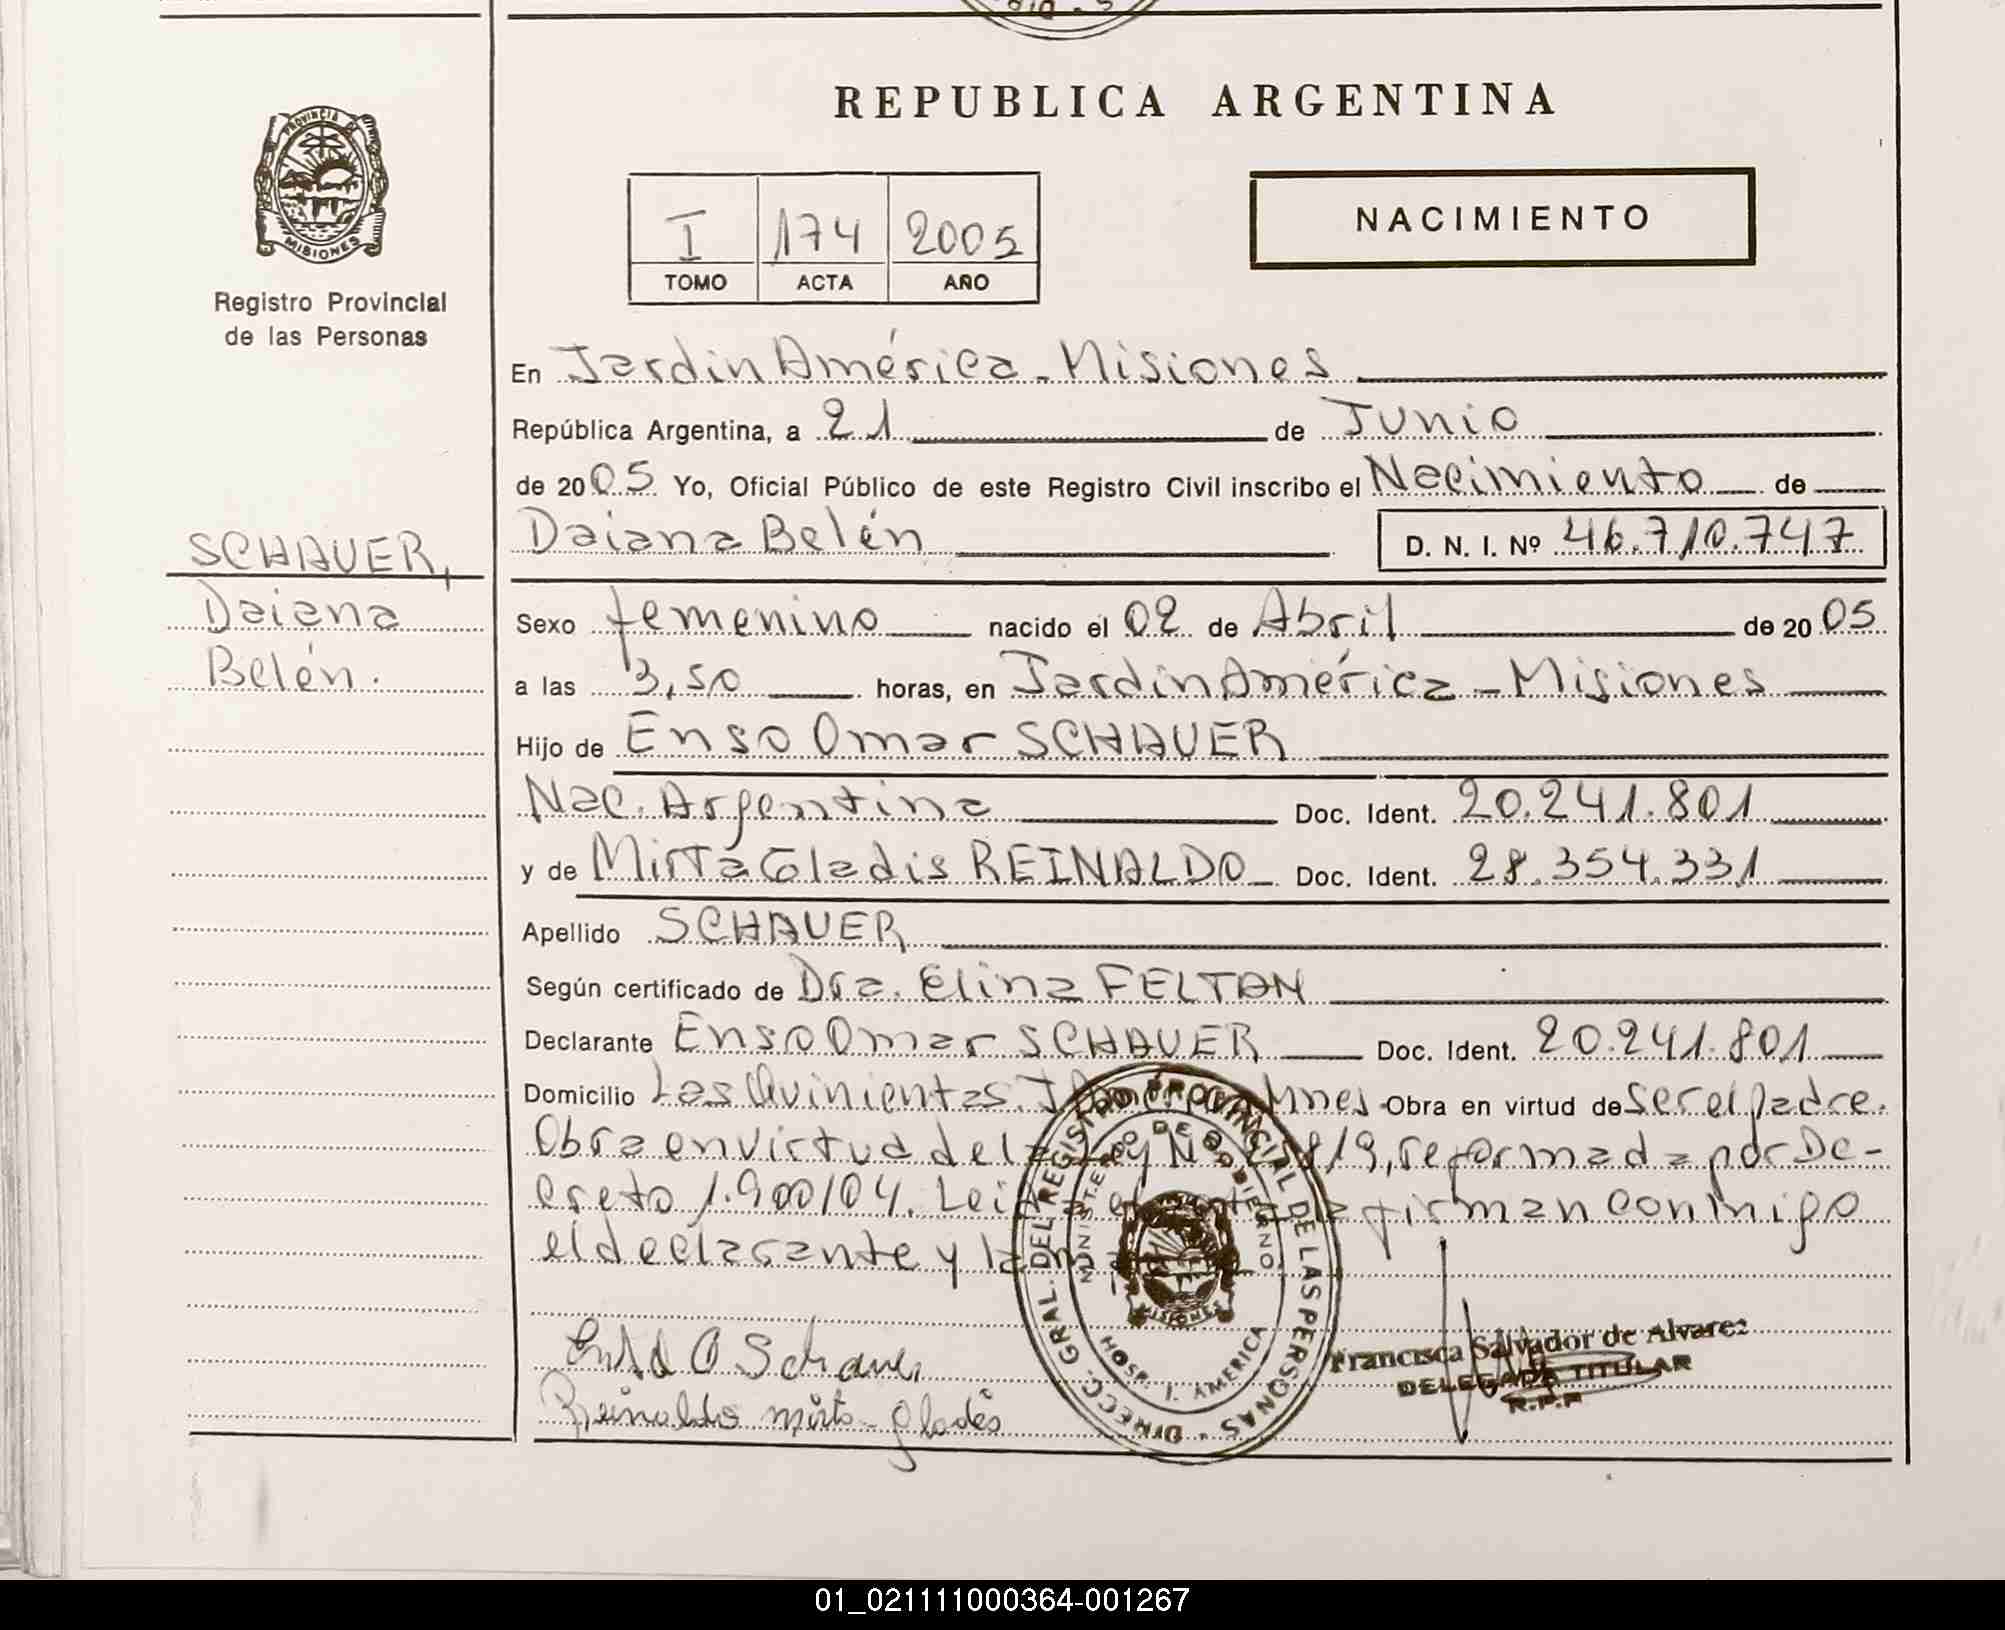 PROVINCIA DE
MISIONES
Registro Provincial
de las Personas
SCHAUER,
Daiana
Belén.
REPUBLICA ARGENTINA
I 174 2005
TOMO ACTA AÑO
NACIMIENTO
En Jardin América - Misiones
República Argentina, a 21 de Junio
de 2005 Yo, Oficial Público de este Registro Civil inscribo el Nacimiento de
Daiana Belén D. N. I. Nº 46.710.747
Sexo femenino nacido el 02 de Abril de 2005
a las 3,50 horas, en Jardin América - Misiones
Hijo de Enso Omar SCHAUER
Nac. Argentina Doc. Ident. 20.241.801
y de Mirta Gladis REINALDO Doc. Ident. 28.354.331
Apellido SCHAUER
Según certificado de Dra. Elina FELTAN
Declarante Enso Omar SCHAUER Doc. Ident. 20.241.801
Domicilio Las Quinientas. Mnes - Obra en virtud de ser el padre.
Obra en virtud de la Ley Nº 819, reformada por De-
creto 1.900/04. Leida el acta la firman conmigo
el declarante y la
DIRECC. GRAL. DEL REGISTRO PROVINCIAL DE LAS PERSONAS
MINISTERIO DE GOBIERNO
MISIONES
HOSP. J. AMERICA
O Schauer
Reinaldo mirta gladis
Francisca Salvador de Alvarez
DELEGADA TITULAR
R.P.P
01_021111000364-001267